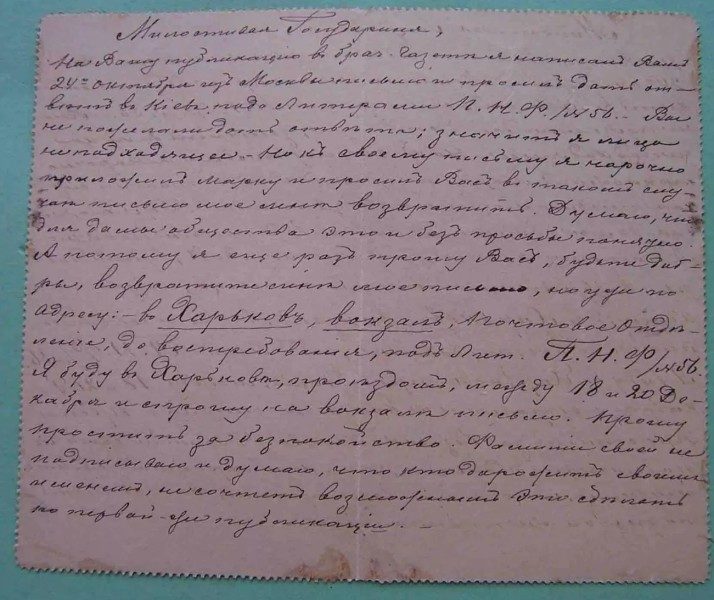 Милостивая Государыня,
На Вашу публикацию в брач. газетѣ я написалъ Вамъ
24го октября изъ Москвы письмо и просилъ дать от-
вѣтъ в Кіевъ подъ Литерами П. Н. Ф/№56. – Вы
не пожелали дать отвѣта; значитъ я лицо
не подходящее. – Но къ своему письму я нарочно
приложилъ марку и просилъ Васъ в такомъ слу-
чаѣ письмо мое мнѣ возвратить. Думаю, что
для дамы общества это и безъ просьбы понятно.
А потому я еще разъ прошу Васъ, будьте доб-
ры, возвратите мнѣ мое письмо, но уже по
адресу: – в Харьковъ, вокзалъ, Почтовое Отдѣ-
леніе, до востребованія, подъ Лит. П. Н. Ф/№56.
Я буду в Харьковѣ, проѣздомъ, между 18 и 20 Де-
кабря и спрошу на вокзалѣ письмо. Прошу
простить за безпокойство. Фамиліи своей не
подписываю и думаю, что кто дорожитъ своимъ
именемъ, не сочтетъ возможнымъ это сдѣлать
по первой же публикаціи. –